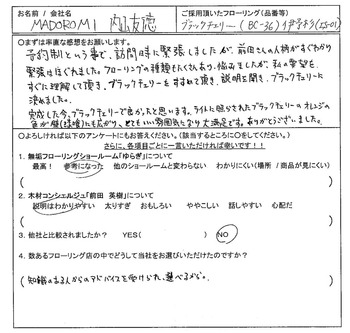 お名前 / 会社名
ご採用頂いたフローリング(品番等)
MADOROMI 内山友徳
ブラックチェリー (BC-36)
○まずは率直な感想をお願いします。
予約制という事で、訪問時に緊張しましたが、前田さんの人柄がすぐわかり
緊張はほぐれました。フローリングの種類もたくさんあり、悩みましたが、私の要望を
すぐに理解して頂き、ブラックチェリーをすすめて頂き、説明を聞き、ブラックチェリーに
決めました。
完成した今、ブラックチェリーで良かったと思います。ライトに照らされたブラックチェリーのオレンジの
色が壁(漆喰)にも広がり、とてもいい雰囲気になり大満足です。ありがとうございました。
○よろしければ以下のアンケートにもお答えください。(該当するところに○をしてください。)
さらに、各項目ごとに一言いただければ幸いです!!
1. 無垢フローリングショールーム「ゆらぎ」について
最高! 参考になった 他のショールームと変わらない わかりにくい(場所 / 商品が見にくい)
2. 木材コンシェルジュ「前田 英樹」について
説明はわかりやすい 太りすぎ おもしろい ややこしい 話しやすい 心配だ
3. 他社と比較されましたか? YES( ) NO
4. 数あるフローリング店の中でどうして当社をお選びいただけたのですか?
(知識のある人からのアドバイスを受けられ、選べるから。)